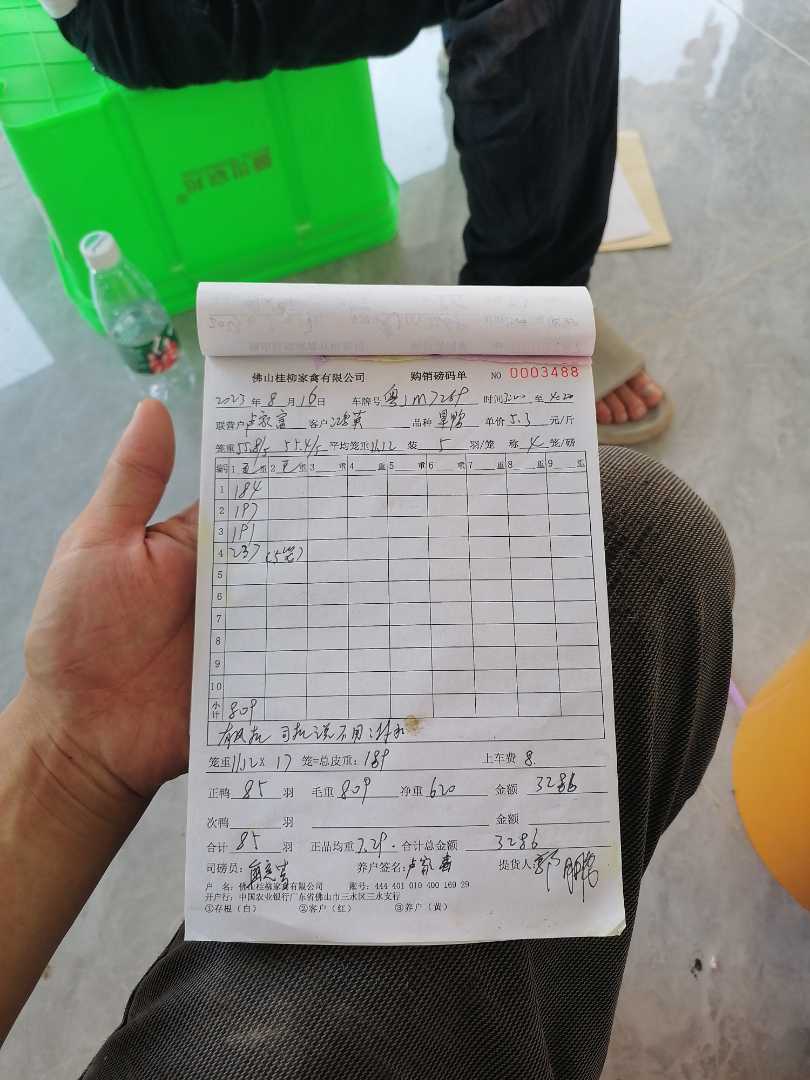 佛山桂柳家禽有限公司 购销磅码单 NO 0003488
2023年8月16日 车牌号 粤JM7269 时间 至
联营户 客户 品种 单价5.3元/斤
笼重55.8/5 55.4/5 平均笼重11.12 装5羽/笼 称4笼/磅
编号 1 重 2 重 3 重 4 重 5 重 6 重 7 重 8 重 9 重
1 184
2 197
3 191
4 237 (5笼)
5
6
7
8
9
10
小计 809
司机说不用
笼重11.12×17笼=总皮重:189 上车费8.
正鸭85羽 毛重809 净重620 金额3286
次鸭 羽 金额
合计85羽 正品均重7.29. 合计总金额3286
司磅员: 养户签名: 提货人
户 名:佛山桂柳家禽有限公司 账号:444 401 010 400 169 29
开户行:中国农业银行广东省佛山市三水区三水支行
①存根(白) ②客户(红) ③养户(黄)